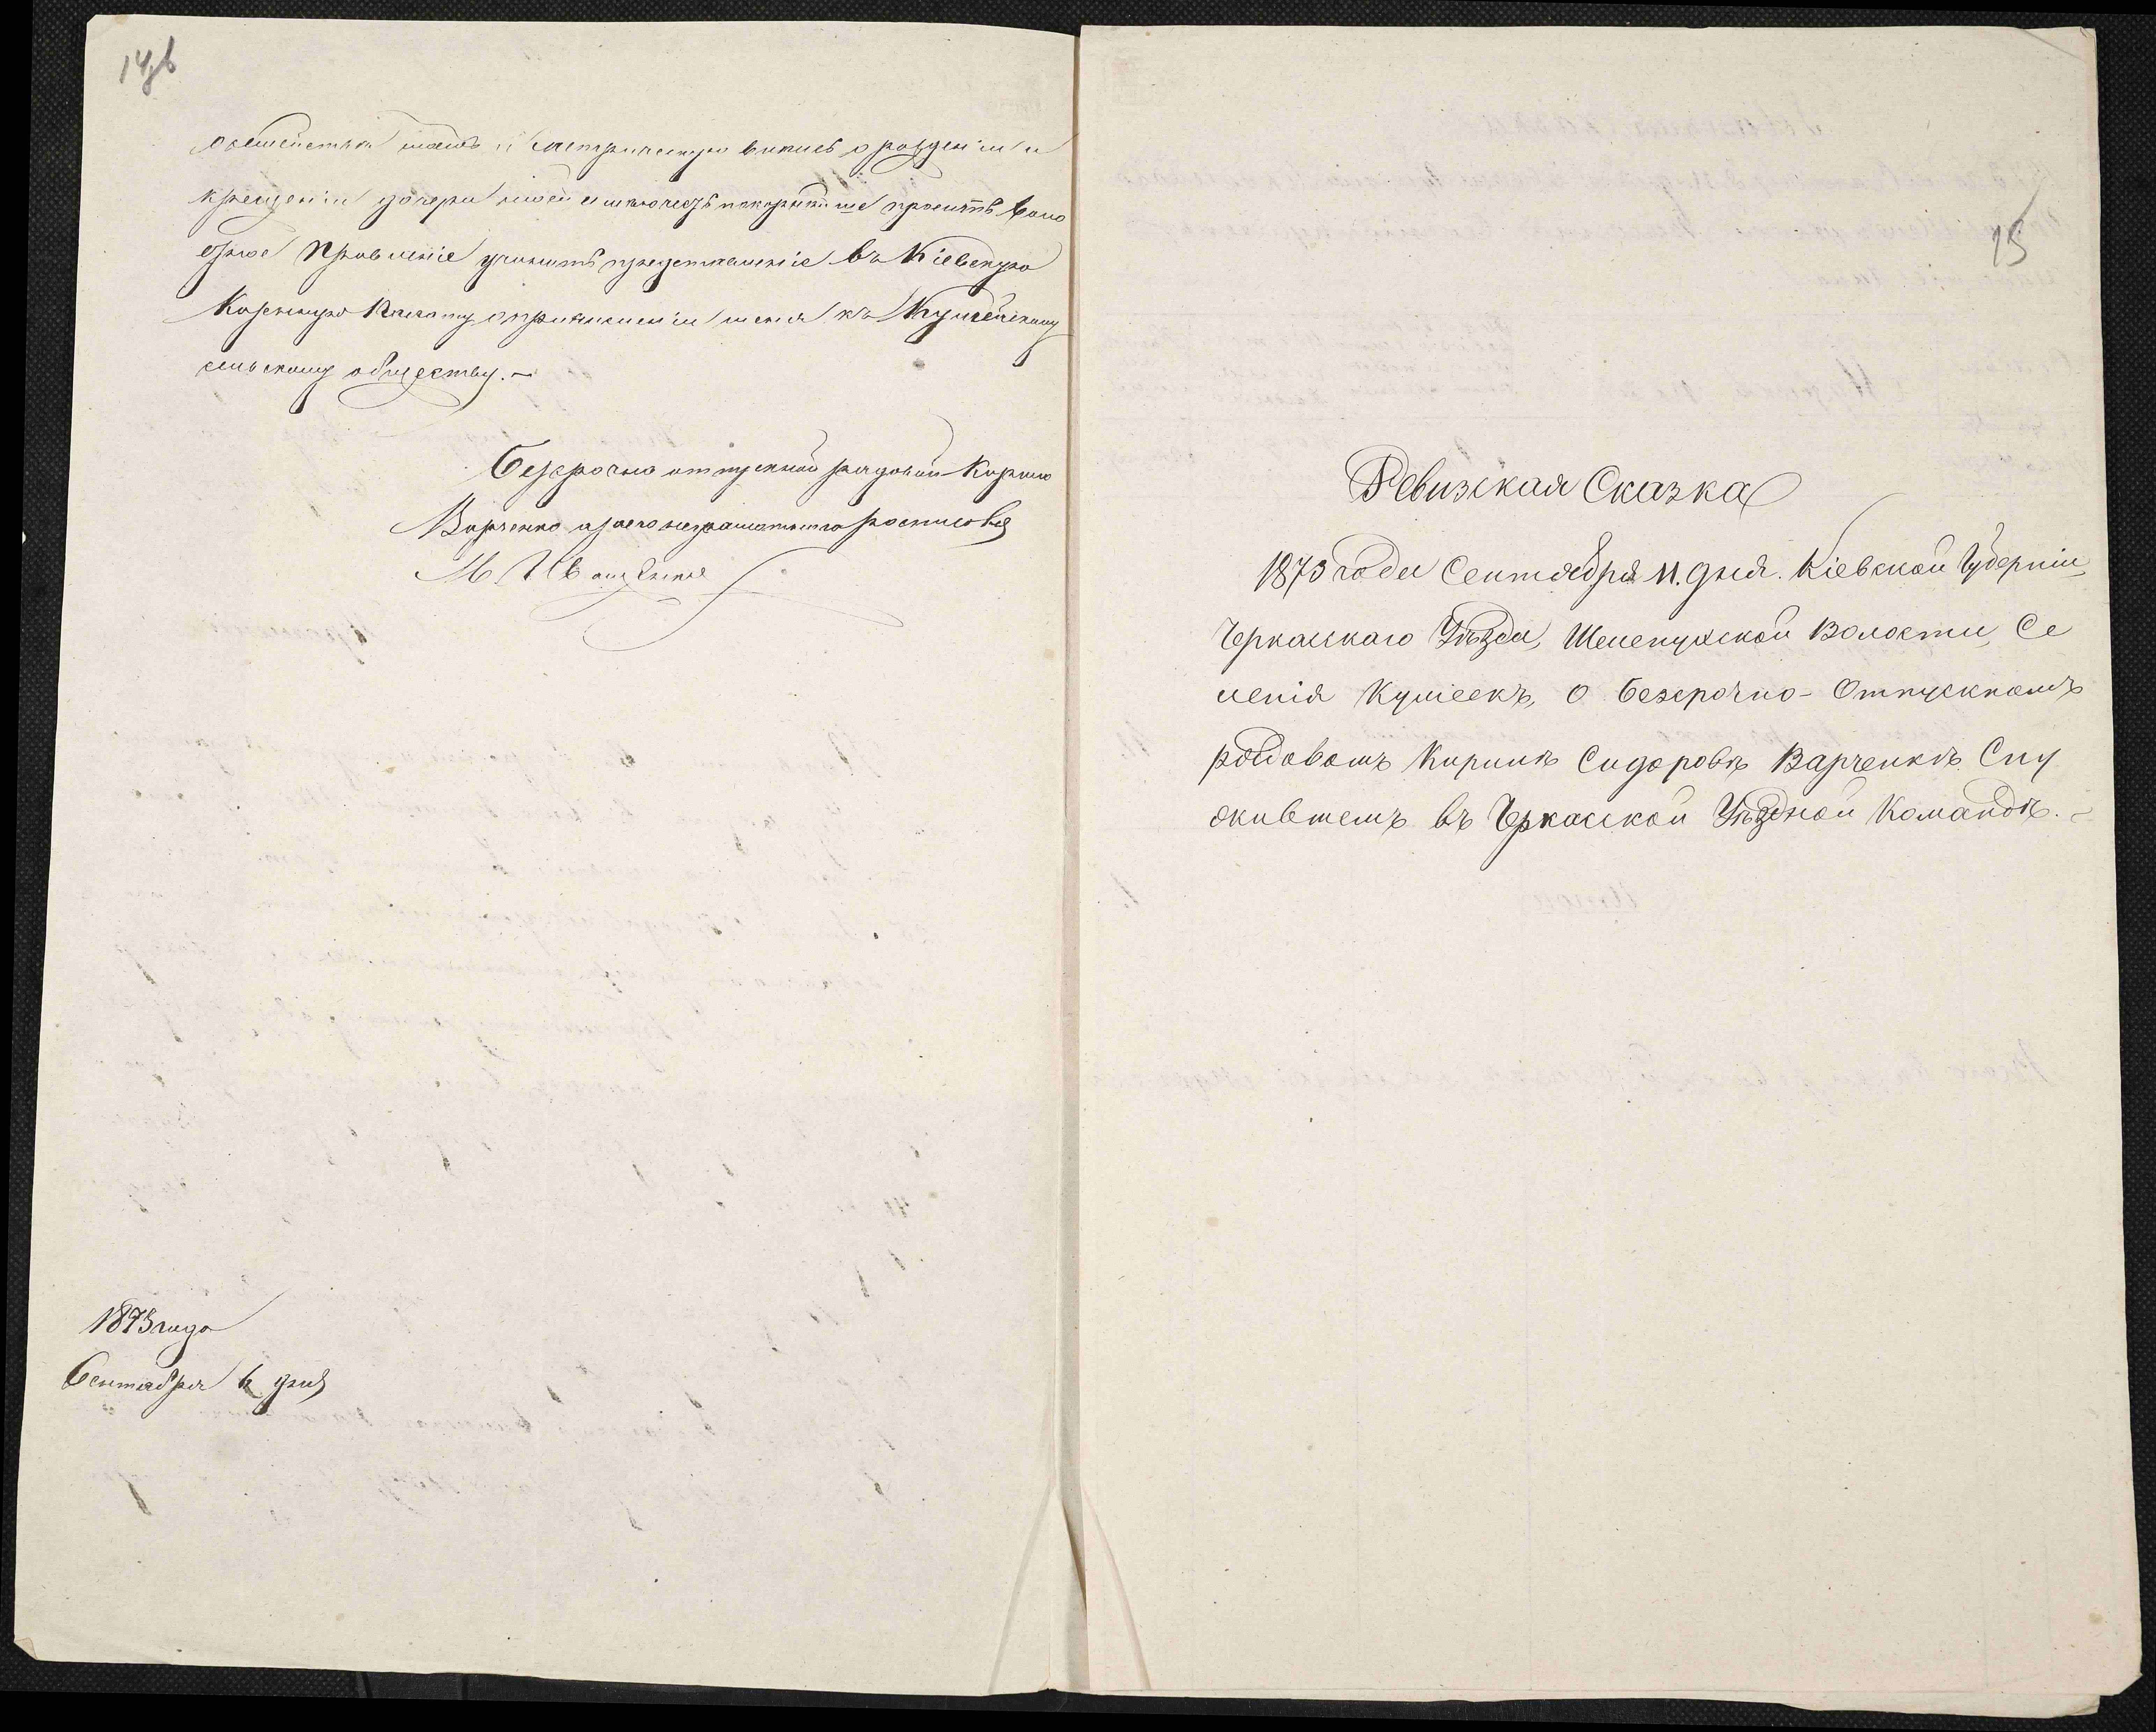 14об
семейства моего и метрическую выпись о рождении и
крещении дочери моей имею честь покорнейше просить Воло
стное Правленіе учинить представленіе въ Кіевскую
Казенную Палату о причисленіи меня къ Кумейскому
сельскому обществу.-
Безсрочно отпускной рядовой Кирило
Варченко а за его неграмотного росписовся
М Иващенко
1873 года
Сентября 6 дня
15
Ревизская Сказка
1873 года Сентября 11. дня. Кіевской Губерніи,
Черкасскаго Уѣзда, Шелепухской Волости, Се
ленія Кумеекъ, о безсрочно-Отпускномъ
рядовомъ Кирилѣ Сидоровѣ Варченкѣ Слу
жившемъ въ Черкасской Уѣздной Командѣ.-